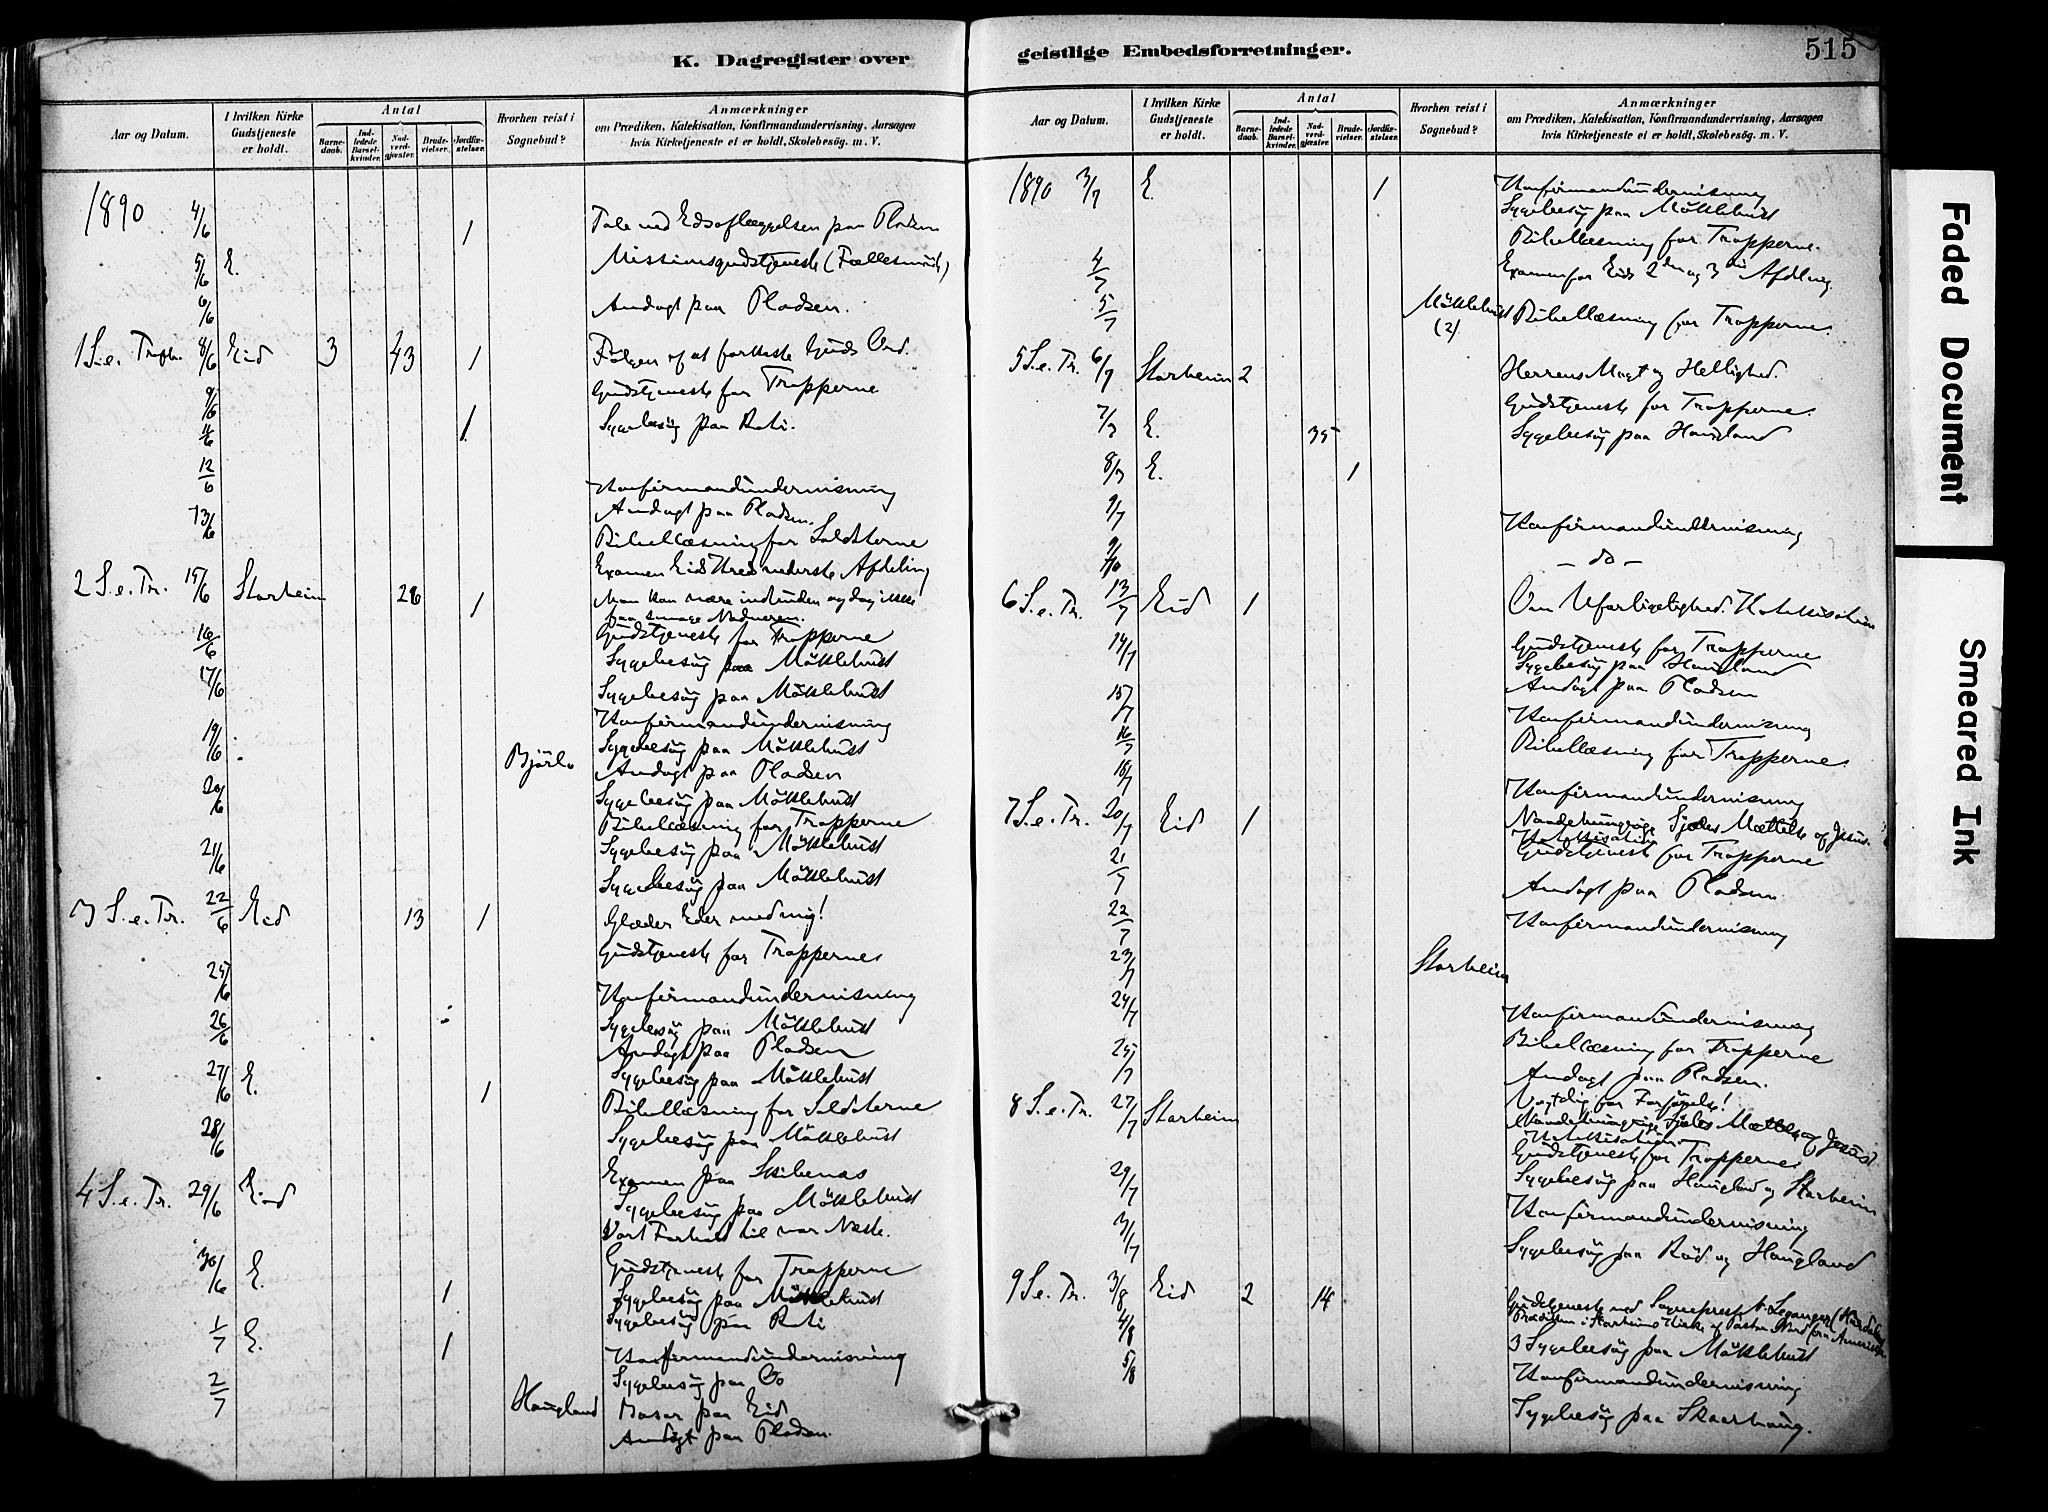 K. Dagregister over
Aar og Datum.
I hvilken Kirke Gudstjeneste er holdt.
Antal
Barnedaab.
Indledede Barselkvinder.
Nadverdgjæster.
Brudevielser.
Jordfæstelser.
Hvorhen reist i Sognebud?
Anmærkninger
om Prædiken, Katekisation, Konfirmandundervisning, Aarsagen
hvis Kirketjeneste ei er holdt, Skolebesøg. m. V.
1890 4/6 1 Tale ved Edsaflæggelsen paa Pladsen
5/6 E. Missionsgudstjeneste (Fællesmøde)
6/6 Andagt paa Pladsen.
1 S. e. Trefh. 8/6 Eid 3 43 1 Følgen af at forkaste Guds Ord.
Gudstjeneste for Tropperne
9/6
11/6 1 Sygebesøg paa Roti.
12/6 Konfirmandundervisning
Andagt paa Pladsen.
13/6 Bibellæsning for Soldaterne
Examen Eids Kreds nederste Afdeling
2 S. e. Tr. 15/6 Starheim 26 1 Man kan være indbuden og dog ikke
faa smage Nadveren.
Gudstjeneste for Tropperne
16/6 Sygebesøg paa Möklebust
17/6 Sygebesøg paa Möklebust
Konfirmandundervisning
19/6 Bjørlo Sygebesøg paa Möklebust
Andagt paa Pladsen
20/6 Sygebesøg paa Möklebust
Bibellæsning for Tropperne
21/6 Sygebesøg paa Möklebust
Sygebesøg paa Möklebust
3 S. e. Tr. 22/6 Eid 13 1 Glæder Eder med mig!
Gudstjeneste for Tropperne
25/6 Konfirmandundervisning
26/6 Sygebesøg paa Möklebust
Andagt paa Pladsen
27/6 E. 1 Sygebesøg paa Möklebust
Bibellæsning for Soldaterne
28/6 Sygebesøg paa Möklebust
Examen paa Skibenes
4 S. e. Tr. 29/6 Eid Sygebesøg paa Möklebust
Vort Forhold til vor Næste.
30/6 E. 1 Gudstjeneste for Tropperne
Sygebesøg paa Möklebust
1/7 E. 1 Sygebesøg paa Roti
Konfirmandundervisning
2/7 Haugland Sygebesøg paa Os
Basar paa Eid
Andagt paa Pladsen.
geistlige Embedsforretninger.
515
Aar og Datum.
I hvilken Kirke Gudstjeneste er holdt.
Antal
Barnedaab.
Indledede Barselkvinder.
Nadverdgjæster.
Brudevielser.
Jordfæstelser.
Hvorhen reist i Sognebud?
Anmærkninger
om Prædiken, Katekisation, Konfirmandundervisning, Aarsagen
hvis Kirketjeneste ei er holdt, Skolebesøg. m. V.
1890 3/7 E. 1 Konfirmandundervisning
Sygebesøg paa Möklebust
Bibellæsning for Tropperne.
4/7 Examen for Eids 2den og 3die Afdeling
5/7 Möklebust (2) Bibellæsning for Tropperne.
5 S. e. Tr. 6/7 Starheim 2 Herrens Magt og Hellighed.
Gudstjeneste for Tropperne.
7/7 E. 35 Sygebesøg paa Haugland
8/7 E. 1
9/7 Konfirmandundervisning
- do -
6 S. e. Tr. 13/7 Eid 1 Om Uforligelighed. Katekisation
14/7 Gudstjeneste for Tropperne
Sygebesøg paa Haugland
Andagt paa Pladsen
15/7 Konfirmandundervisning
16/7 Bibellæsning for Tropperne
18/7 Konfirmandundervisning
7 S. e. Tr. 20/7 Eid 1 Naadehungrige Sjæles Mættelse af Jesus.
Katekisation
Gudstjeneste for Tropperne
21/7 Andagt paa Pladsen.
22/7 Konfirmandundervisning
23/7 Starheim
24/7 Konfirmandundervisning
Bibellæsning for Tropperne
25/7 Andagt paa Pladsen.
8 S. e. Tr. 27/7 Starheim Vogt dig for Forførelse!
Naadehungrige Sjæles Mættelse af Jesus.
Katekisation.
Gudstjeneste for Tropperne
29/7 Sygebesøg paa Haugland og Starheim
Konfirmandundervisning
31/7 Sygebesøg paa Rød og Haugland
9 S. e. Tr. 3/8 Eid 2 14 Gudstjeneste ved Sogneprest
Prædiken i Starheims Kirke af Pastor fra Amerika
4/8 3 Sygebesøg paa Möklebust
5/8 Konfirmandundervisning
Sygebesøg paa Skaarhaug.
Faded Document
Smeared Ink